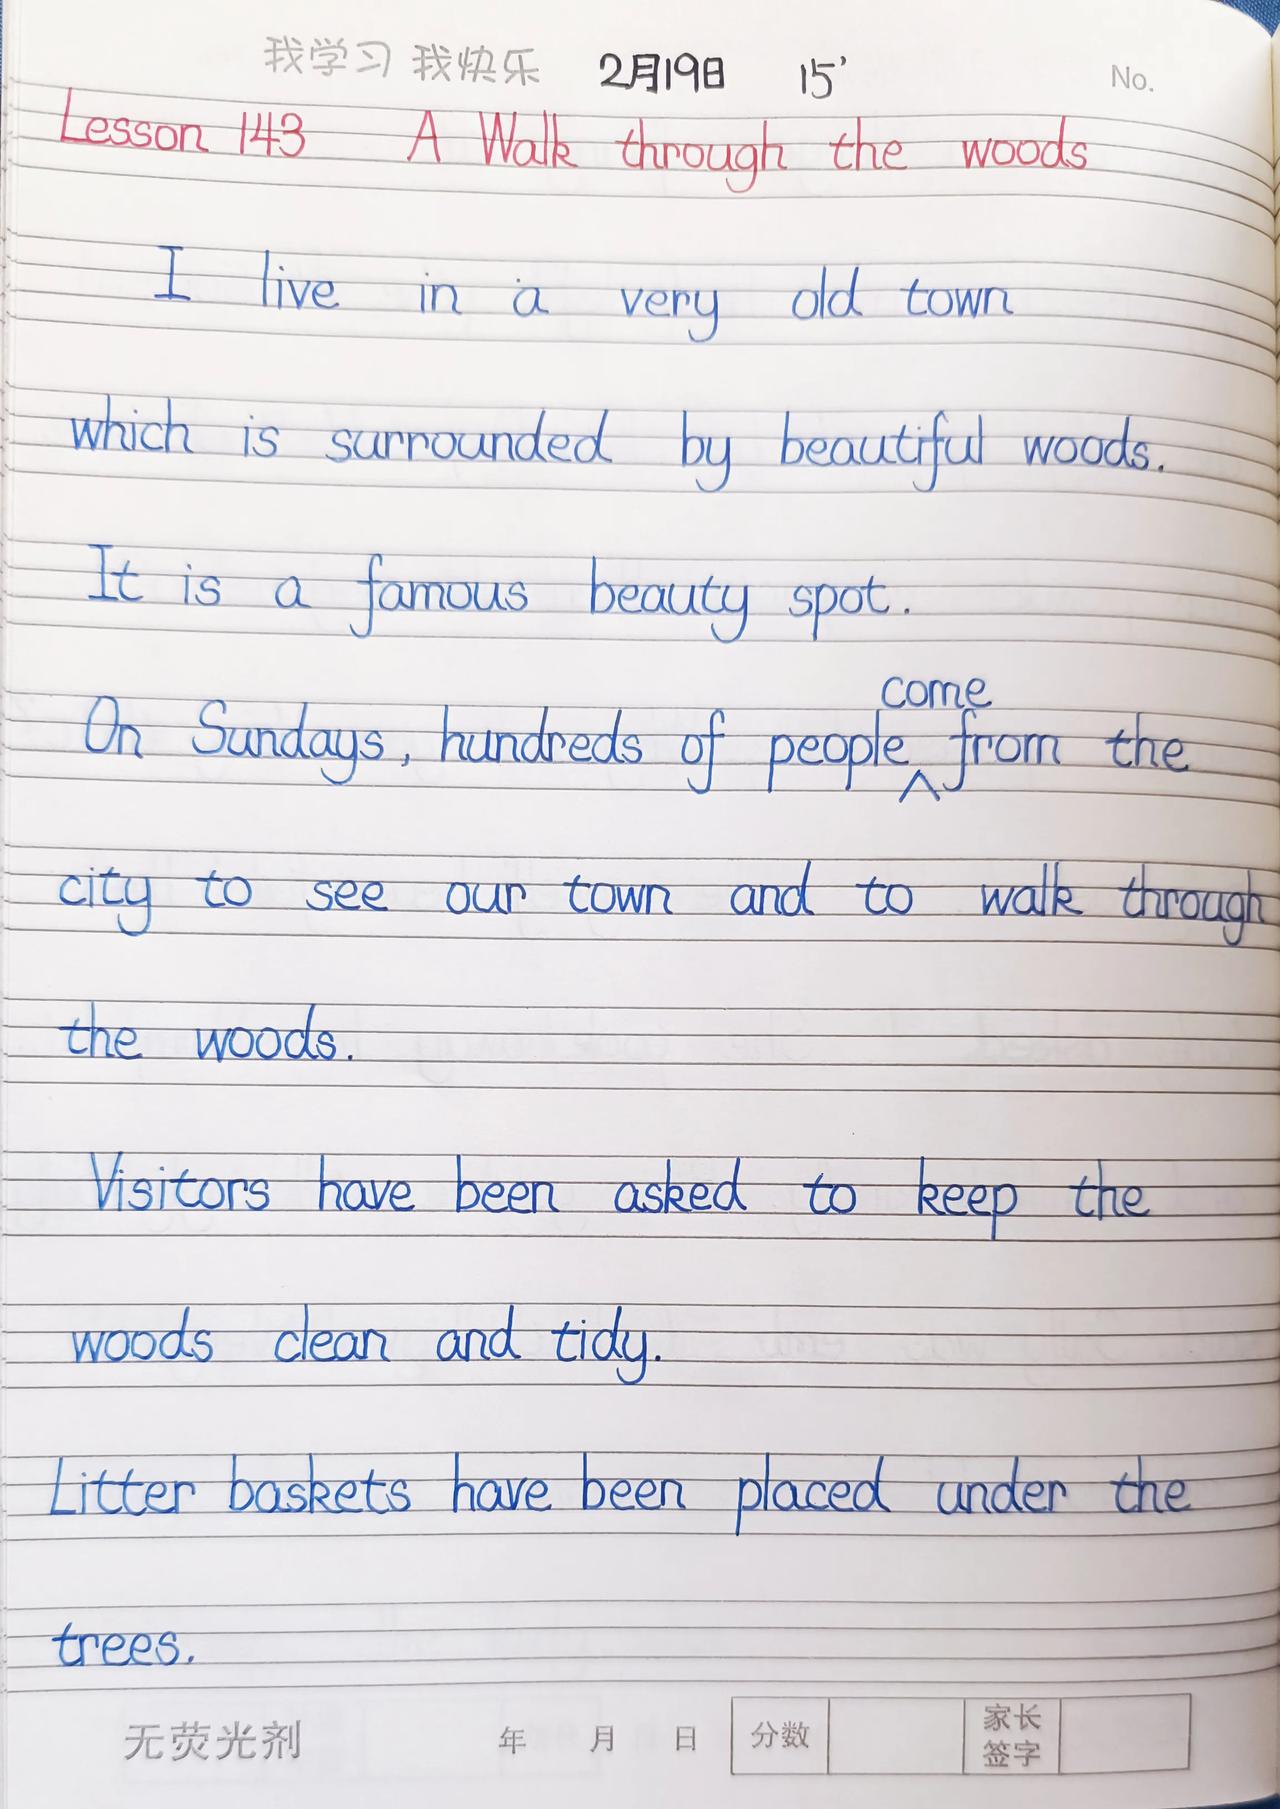 我学习 我快乐 2月19日 15' No.
Lesson 143 A Walk through the woods
I live in a very old town
which is surrounded by beautiful woods.
It is a famous beauty spot.
come
On Sundays, hundreds of people ^ from the
city to see our town and to walk through
the woods.
Visitors have been asked to keep the
woods clean and tidy.
Litter baskets have been placed under the
trees.
无荧光剂 年 月 日 分数 家长签字